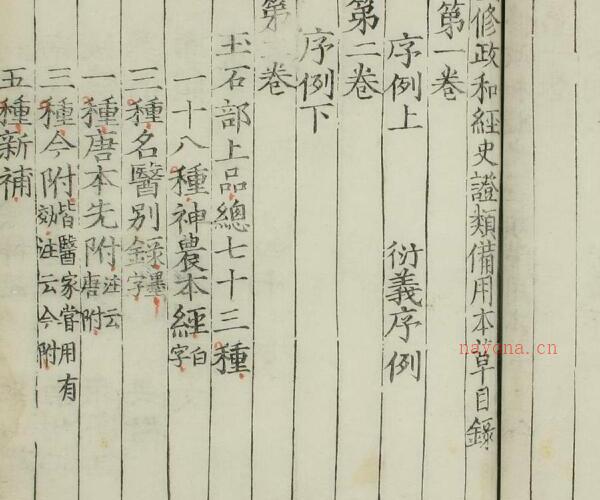 修政和經史證類備用本草目錄
第一卷
序例上 衍義序例
第二卷
序例下
第三卷
玉石部上品總七十三種
一十八種神農本經白字
三種名醫別錄墨字
一種唐本先附注云唐附
三種今附皆醫家嘗用有効注云今附
五種新補
nayona.cn